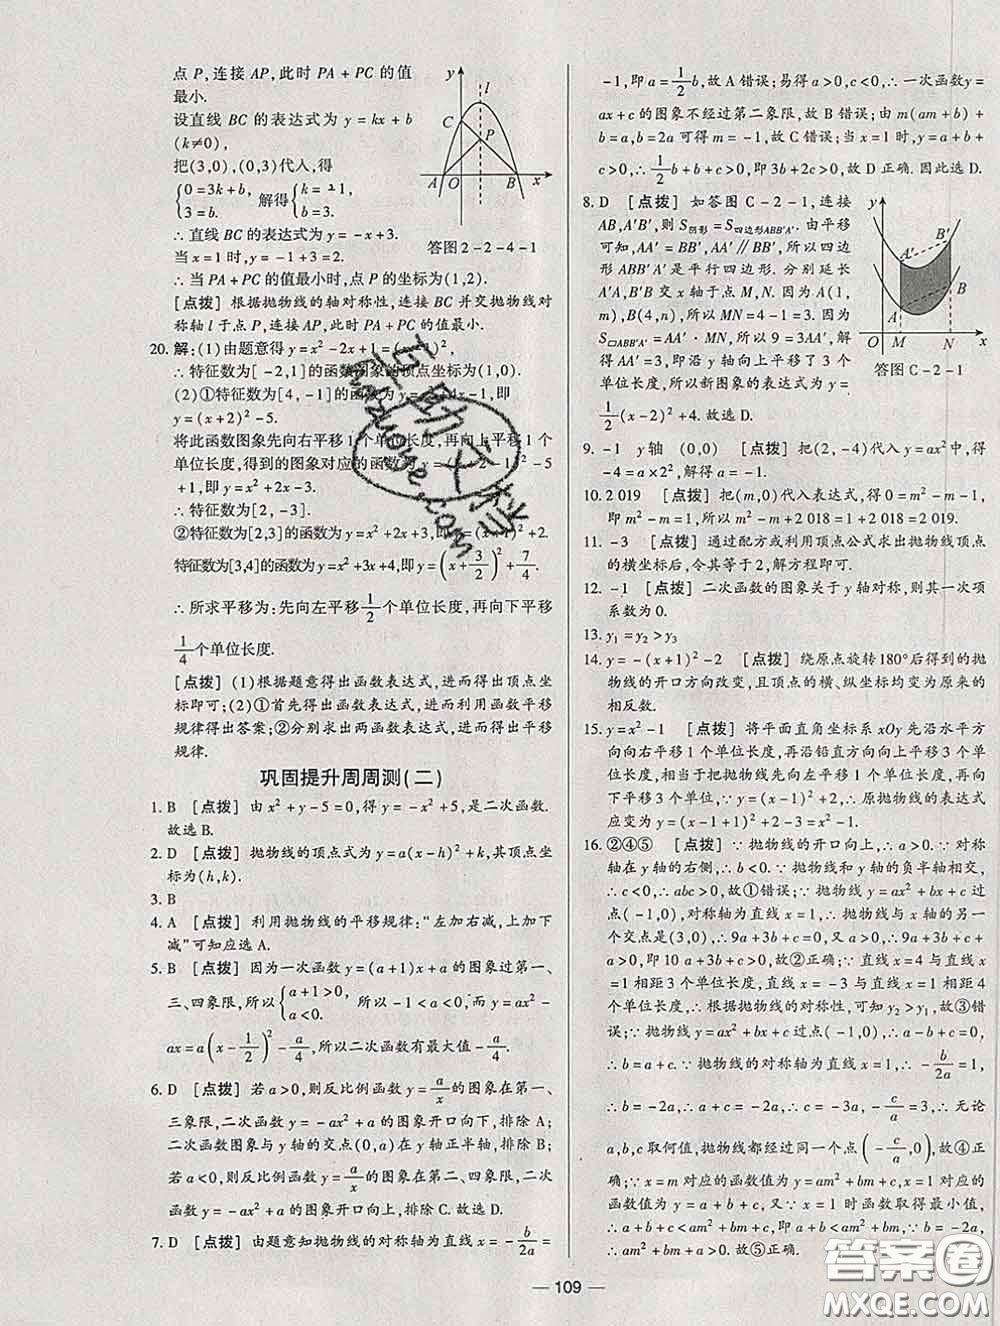 点 P,连接 AP,此时 PA + PC 的值
最小.
设直线 BC 的表达式为 y = kx + b
(k≠0),
把(3,0),(0,3)代入,得
{0=3k+b, 3=b. 解得{k=-1, b=3.
∴ 直线 BC 的表达式为 y = -x + 3.
当 x = 1 时,y = 2.
y l C P A O B x
答图 2-2-4-1
∴ 当 PA + PC 的值最小时,点 P 的坐标为(1,2).
[点拨] 根据抛物线的轴对称性,连接 BC 并交抛物线对
称轴 l 于点 P,连接 AP,此时 PA + PC 的值最小.
20. 解:(1)由题意得 y = x² - 2x + 1 = (x-1)²,
∴ 特征数为[ -2,1]的函数图象的顶点坐标为(1,0).
(2)①特征数为[4, -1]的函数为 y = x² + 4x - 1,即
y = (x+2)² - 5.
将此函数图象先向右平移 1 个单位长度,再向上平移 1 个
单位长度,得到的图象对应的函数为 y = (x+2-1)² - 5
+1,即 y = x² + 2x - 3.
∴ 特征数为[2, -3].
②特征数为[2,3]的函数为 y = x² + 2x + 3,即 y = (x+1)² + 2.
特征数为[3,4]的函数为 y = x² + 3x + 4,即 y = (x + 3/2)² + 7/4
∴ 所求平移为:先向左平移 1/2 个单位长度,再向下平移
1/4 个单位长度.
[点拨] (1)根据题意得出函数表达式,进而得出顶点坐
标即可;(2)①首先得出函数表达式,进而利用函数平移
规律得出答案;②分别求出两函数表达式,进而得出平移
规律.
巩固提升周周测(二)
1. B [点拨] 由 x² + y - 5 = 0,得 y = -x² + 5,是二次函数.
故选 B.
2. D [点拨] 抛物线的顶点式为 y = a(x-h)² + k,其顶点坐
标为(h,k).
3. B
4. A [点拨] 利用抛物线的平移规律:“左加右减,上加下
减”可知应选 A.
5. B [点拨] 因为一次函数 y = (a+1)x + a 的图象过第一、
三、四象限,所以{a+1>0, a<0. 所以 -1<a<0,而 y = ax² -
ax = a(x - 1/2)² - a/4,所以二次函数有最大值 -a/4.
6. D [点拨] 若 a>0,则反比例函数 y = a/x 的图象在第一、
三象限,二次函数 y = -ax² + a 的图象开口向下,排除 A;
二次函数图象与 y 轴的交点(0,a)在 y 轴正半轴,排除 B;
若 a<0,则反比例函数 y = a/x 的图象在第二、四象限,二次
函数 y = -ax² + a 的图象开口向上,排除 C. 故选 D.
7. D [点拨] 由题意知抛物线的对称轴为直线 x = -b/2a =
-1,即 a = 1/2 b,故 A 错误;易得 a>0,c<0,∴ 一次函数 y =
ax + c 的图象不经过第二象限,故 B 错误;由 m(am + b)
+ b = a,b = 2a 可得 m = -1,故 C 错误;当 x = 1 时,y = a + b +
c>0,∴ 1/2 b + b + c>0,即 3b + 2c>0,故 D 正确. 因此选 D.
8. D [点拨] 如答图 C-2-1,连接
AB,A'B',则 S阴影 = S四边形ABB'A'. 由平移
可知,AA' = BB',AA' ∥ BB',所以四边
形 ABB'A' 是平行四边形. 分别延长
A'A,B'B 交 x 轴于点 M,N. 因为 A(1,
m),B(4,n),所以 MN = 4 - 1 = 3. 因为
S▱ABB'A' = AA'·MN,所以 9 = 3AA',
解得 AA' = 3,即沿 y 轴向上平移了 3 个
单位长度,所以新图象的表达式为 y =
1/2 (x-2)² + 4. 故选 D.
y B' A' B A O M N x
答图 C-2-1
9. -1 y 轴 (0,0) [点拨] 把(2, -4)代入 y = ax² 中,得
-4 = a×2²,解得 a = -1.
10. 2 019 [点拨] 把(m,0)代入表达式,得 0 = m² - m - 1,
即 m² - m = 1,所以 m² - m + 2 018 = 1 + 2 018 = 2 019.
11. -3 [点拨] 通过配方或利用顶点公式求出抛物线顶点
的横坐标后,令其等于 2,解方程即可.
12. -1 [点拨] 二次函数的图象关于 y 轴对称,则其一次项
系数为 0.
13. y₁ = y₂ > y₃
14. y = -(x+1)² - 2 [点拨] 绕原点旋转180°后得到的抛
物线的开口方向改变,且顶点的横、纵坐标均变为原来的
相反数.
15. y = x² - 1 [点拨] 将平面直角坐标系 xOy 先沿水平方
向向右平移 1 个单位长度,再沿铅直方向向上平移 1 个单
位长度,相当于将抛物线先向左平移 1 个单位长度,再向
下平移 3 个单位,∵ y = (x-1)² + 2,∴ 原抛物线的表达式
应变为 y = (x-1+1)² + 2 - 3 = x² - 1.
16. ②④⑤ [点拨] ∵ 抛物线的开口向上,∴ a>0. ∵ 对称
轴在 y 轴的右侧,∴ b<0. ∵ 抛物线和 y 轴的负半轴相交,
∴ c<0,∴ abc>0,故①错误;∵ 抛物线 y = ax² + bx + c 过点
( -1,0),对称轴为直线 x = 1,∴ 抛物线与 x 轴的另一
个交点是(3,0),∴ 9a + 3b + c = 0,∴ 9a + 3b + c + a = a.
a>0,即 10 a + 3b + c>0,故②正确;∵ 直线 x = 4 与直线 x
=1 相距 3 个单位长度,直线 x = -3 与直线 x = 1 相距 4
个单位长度,∴ 根据抛物线的对称性,可知 y₂>y₁,故③错
误;∵ 抛物线 y = ax² + bx + c 过点( -1,0),∴ a - b + c = 0,
∴ b = a + c. ∵ 抛物线的对称轴为直线 x = 1,∴ -b/2a = 1,
∴ b = -2a,∴ a + c = -2a,∴ c = -3a,∴ -c/a = 3,∴ 无论
a,b,c 取何值,抛物线都经过同一个点( -c/a ,0),故④正
确;∵ x = m 对应的函数值为 y = am² + bm + c,x = 1 对应的
函数值为 y = a + b + c,又∵ x = 1 时函数取得最小值,
∴ am² + bm + c ≥ a + b + c,即 am² + bm ≥ a + b. ∵ b = -2a,
∴ am² + bm + a ≥ 0,故⑤正确.
— 109 —
互助文档
huzhuoye.com
答案圈
MXQE.COM